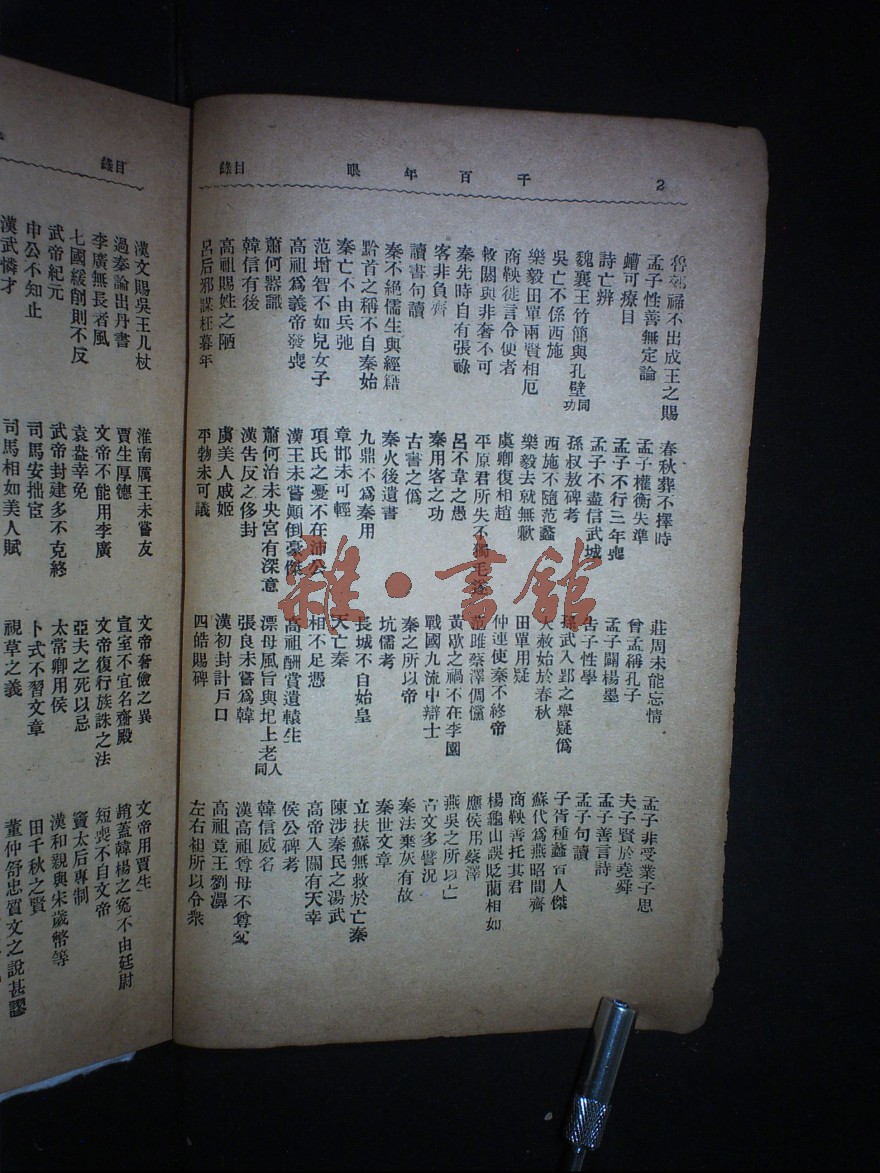 2 千百年眼 目錄
魯郊禘不出成王之賜 春秋葬不擇時 莊周未能忘情 孟子非受業子思
孟子性善無定論 孟子權衡失準 曾孟稱孔子 夫子賢於堯舜
鱣可療目 孟子不行三年喪 孟子闢楊墨 孟子善言詩
詩亡辨 孟子不盡信武城 告子性學 孟子句讀
魏襄王竹簡與孔壁同功 孫叔敖碑考 孫武入郢之舉疑僞 子胥種蠡皆人傑
吳亡不係西施 西施不隨范蠡 大赦始於春秋 蘇代爲燕昭間齊
樂毅田單兩賢相厄 樂毅去就無歉 田單用疑 商鞅善托其君
商鞅徙言令便者 虞卿復相趙 仲連使秦不終帝 楊龜山誤貶藺相如
敘關與非奢不可 平原君所失不獨毛遂 范雎蔡澤倜儻 應侯用蔡澤
秦先時自有張祿 呂不韋之愚 黃歇之禍不在李園 燕吳之所以亡
客非負齊 秦用客之功 戰國九流中辯士 古文多譬況
讀書句讀 古書之僞 秦之所以帝 秦法棄灰有故
秦不絕儒生與經籍 秦火後遺書 坑儒考 秦世文章
黔首之稱不自秦始 九鼎不爲秦用 長城不自始皇 立扶蘇無救於亡秦
秦亡不由兵弛 章邯未可輕 天亡秦 陳涉秦民之湯武
范增智不如兒女子 項氏之憂不在沛公 相不足憑 高帝入關有天幸
高祖爲義帝發喪 漢王未嘗顚倒豪傑 高祖酬賞遺轅生 侯公碑考
蕭何器識 蕭何治未央宮有深意 漂母風旨與圯上老人同 韓信威名
韓信有後 漢告反之侈封 張良未嘗爲韓 漢高祖尊母不尊父
高祖賜姓之陋 虞美人戚姬 漢初封計戶口 高祖竟王劉濞
呂后邪謀枉暮年 平勃未可議 四皓賜碑 左右袒所以令衆
目錄
漢文賜吳王几杖 淮南厲王未嘗友 文帝奢儉之異 文帝用賈生
過秦論出丹書 賈生厚德 宣室不宜名齋殿 趙蓋韓楊之冤不由廷尉
李廣無長者風 文帝不能用李廣 文帝復行族誅之法 短喪不自文帝
七國緩削則不反 袁盎幸免 亞夫之死以忌 竇太后專制
武帝紀元 武帝封建多不克終 太常卿用侯 漢和親與宋歲幣等
申公不知止 司馬安拙宦 卜式不習文章 田千秋之賢
漢武憐才 司馬相如美人賦 視草之義 董仲舒忠質文之說甚謬
雜·書館